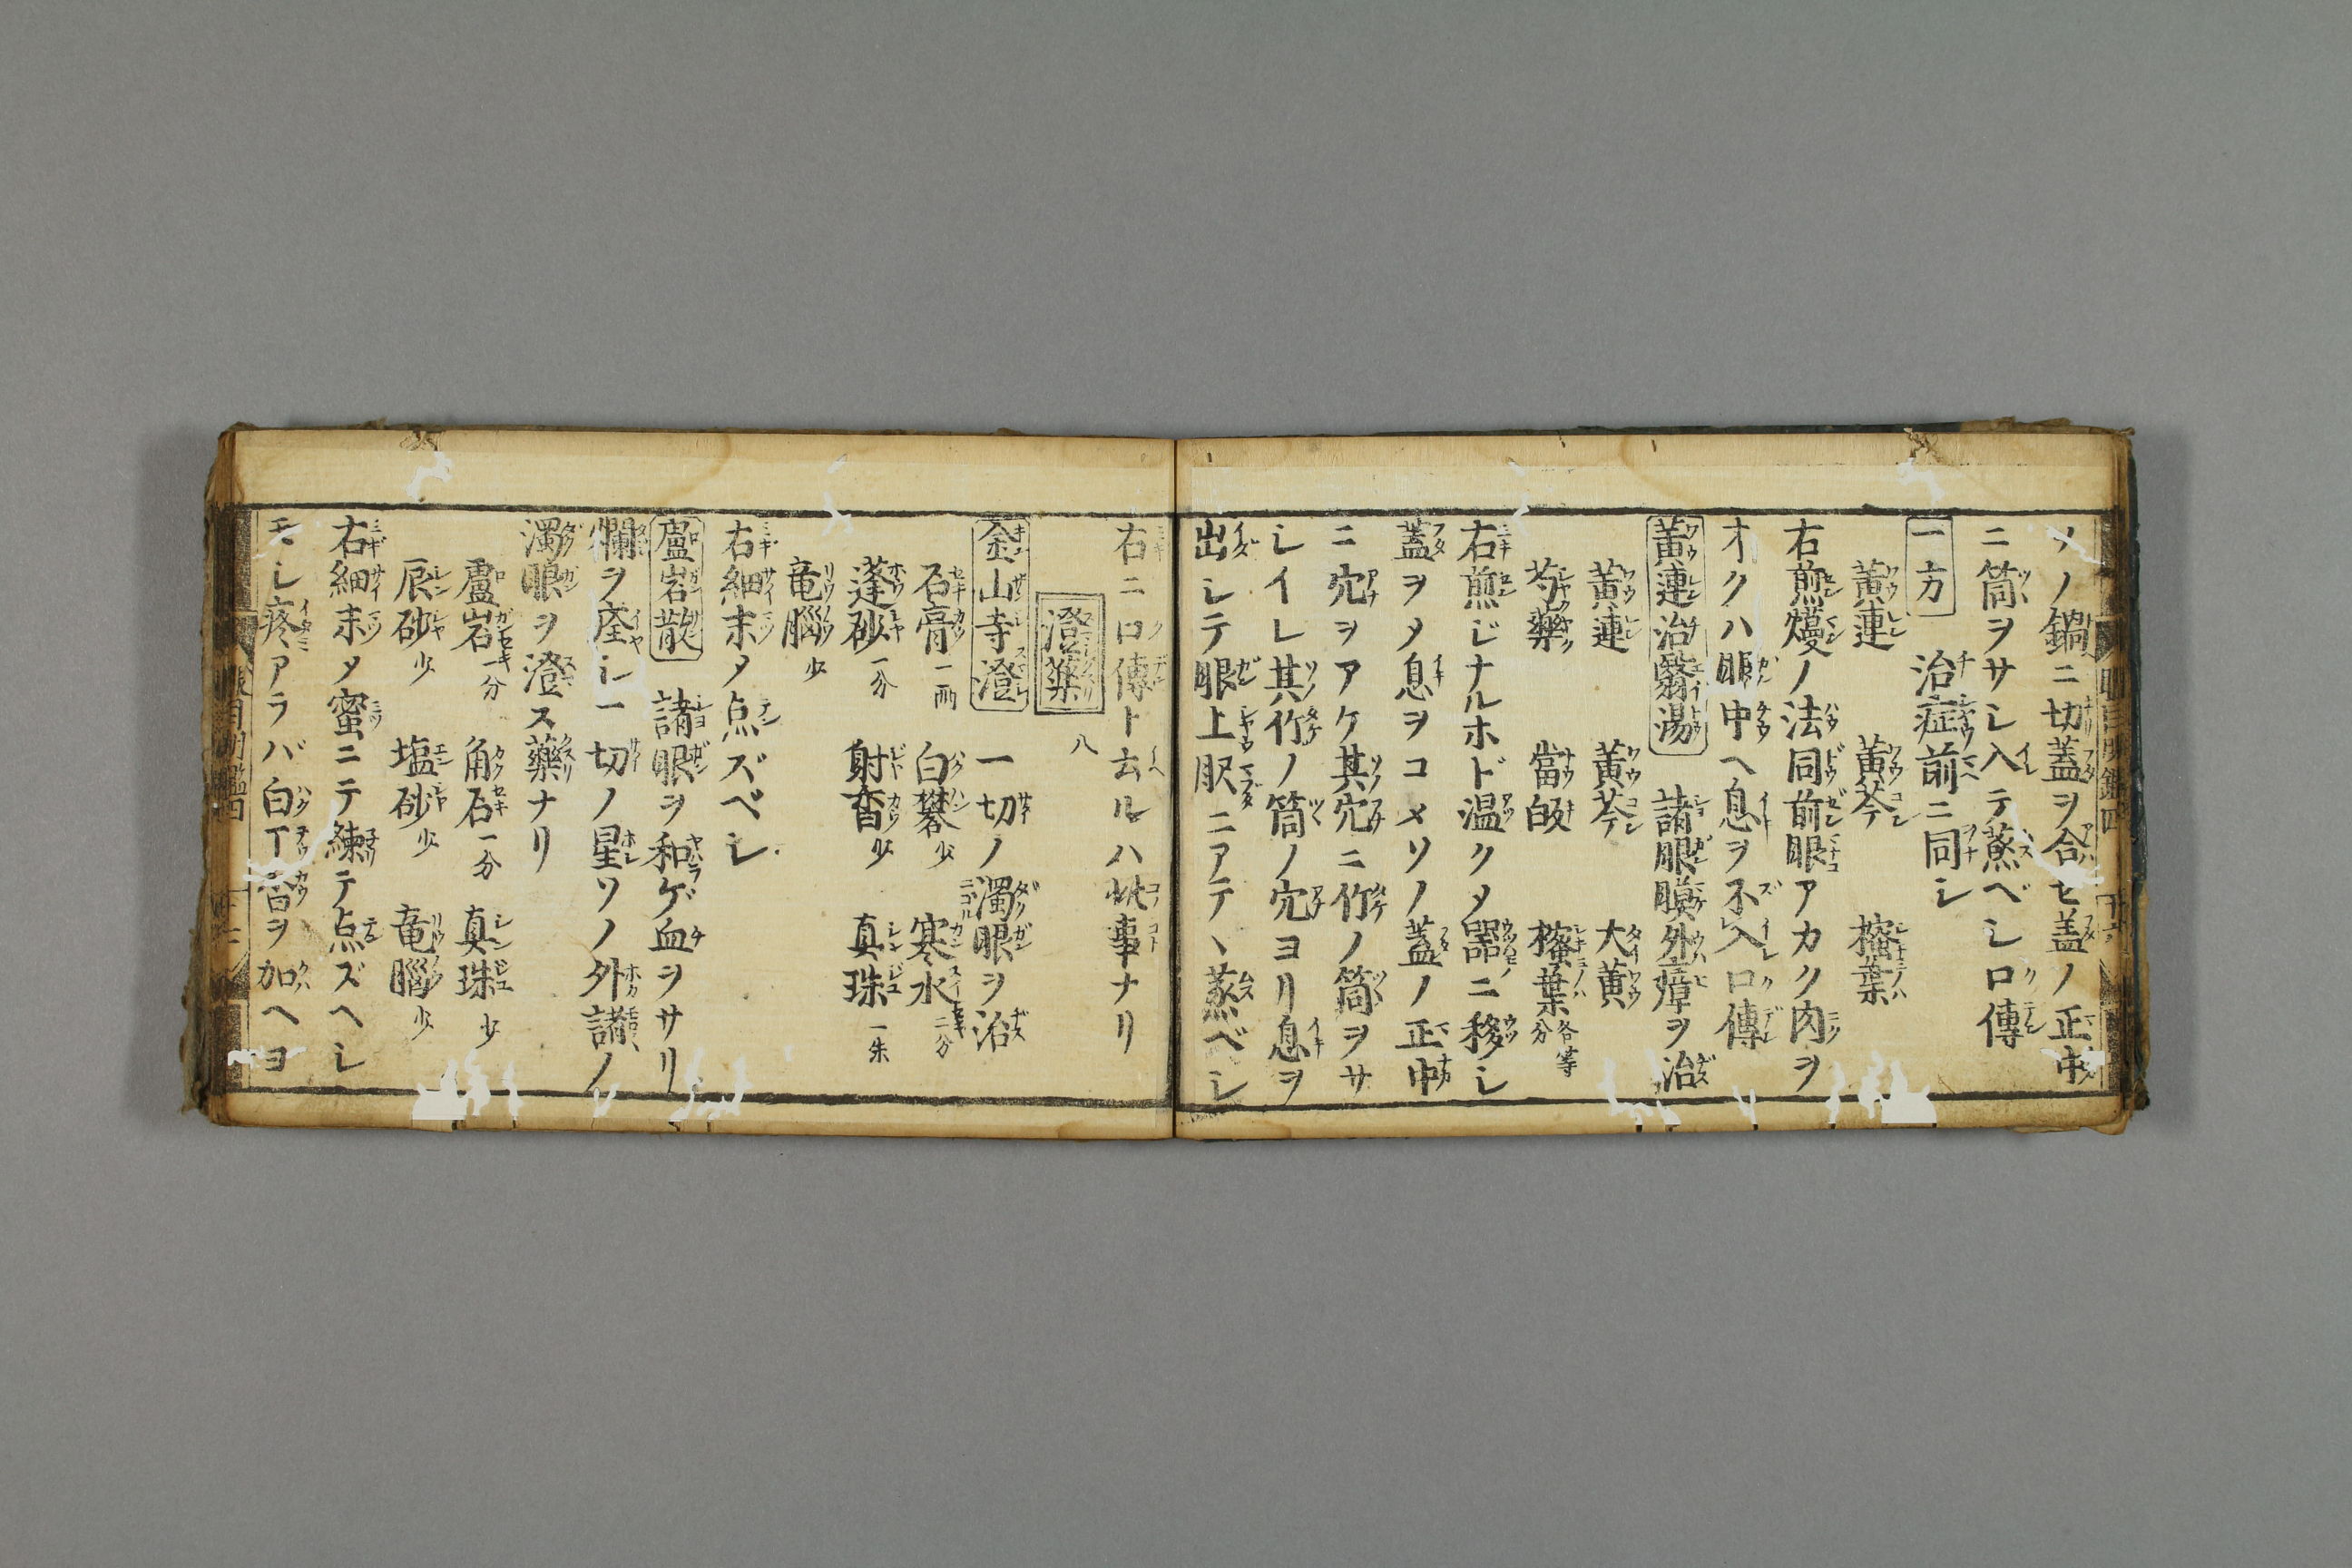 ソノ鍋ニ切蓋ヲ合セ蓋ノ正中
ニ筒ヲサシ入テ蒸ベシ口傳
一方 治症前ニ同シ
黄連 黄芩 櫁葉
右煎熳ノ法同前眼アカク肉ヲ
オクハ眼中ヘ息ヲ不入口傳
黄連治翳湯 諸眼膜外瘴ヲ治
黄連 黄芩 大黄
芍藥 當皈 櫁葉各等分
右煎じナルホド温クメ器ニ移シ
蓋ヲメ息ヲコメソノ蓋ノ正中
ニ穴ヲアケ其穴ニ竹ノ筒ヲサ
シイレ其竹ノ筒ノ穴ヨリ息ヲ
出シテ眼上眂ニアテヽ蒸ベシ
右ニ口傳ト云ルハ此事ナリ
澄藥 八
金山寺澄 一切ノ濁眼ヲ治
石膏一兩 白礬少 寒水二分
蓬砂一分 射香少 真珠一朱
竜腦少
右細末メ点ズベシ
盧岩散 諸眼ヲ和ゲ血ヲサリ
爛ヲ痊シ一切ノ星ソノ外諸ノ
濁眼ヲ澄ス藥ナリ
盧岩一分 角石一分 真珠少
辰砂少 塩砂少 竜腦少
右細末メ蜜ニテ練テ点ズヘシ
モシ疼アラバ白丁香ヲ加ヘヨ